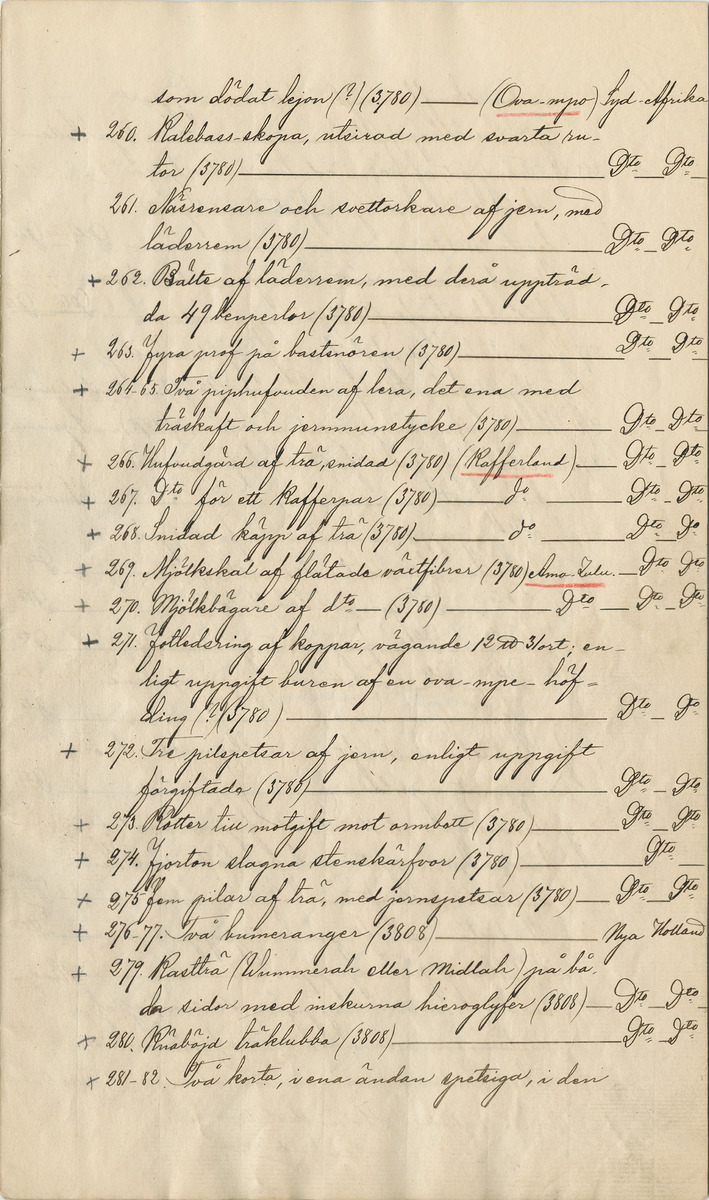 som dödat lejon (?) (3780) (Ova-mpo) Syd-Afrika
+ 260. Kalebass-skopa, utsirad med svarta ru-
tor (3780) Dto Dto
261. Näsrensare och svettorkare af jern, med
läderrem (3780) Dto Dto
+ 262. Bälte af läderrem, med derå uppträd-
da 49 benperlor (3780) Dto Dto
+ 263. Fyra prof på bastsnören (3780) Dto Dto
+ 264-65. Två piphufvuden af lera, det ena med
träskaft och jernmunstycke (3780) Dto Dto
+ 266. Hufvudgärd af trä, snidad (3780) (Kafferland) Dto Dto
+ 267. Dto för ett kafferpar (3780) do Dto Dto
+ 268. Snidad käpp af trä (3780) do Dto Do
+ 269. Mjölkskål af flätade växtfibrer (3780) Ama-Zulu. Dto Dto
+ 270. Mjölkbägare af dto (3780) Dto Dto Dto
+ 271. Fotledsring af koppar, vägande 12 ℔ 31 ort; en-
ligt uppgift buren af en ova-mpe-höf-
ding (?) (3780) Dto Do
+ 272. Tre pilspetsar af jern, enligt uppgift
förgiftade (3780) Dto Dto
+ 273. Rötter till motgift mot ormbett (3780) Dto Dto
+ 274. Fjorton slagna stenskärfvor (3780) Dto
+ 275 Fem pilar af trä, med jernspetsar (3780) Dto Dto
+ 276-77. Två bumeranger (3808) Nya Holland
+ 279. Kastträ (Wummerah eller Midlah) på bå-
da sidor med inskurna hieroglyfer (3808) Dto Dto
+ 280. Knäböjd träklubba (3808) Dto Dto
+ 281-82. Två korta, i ena ändan spetsiga, i den